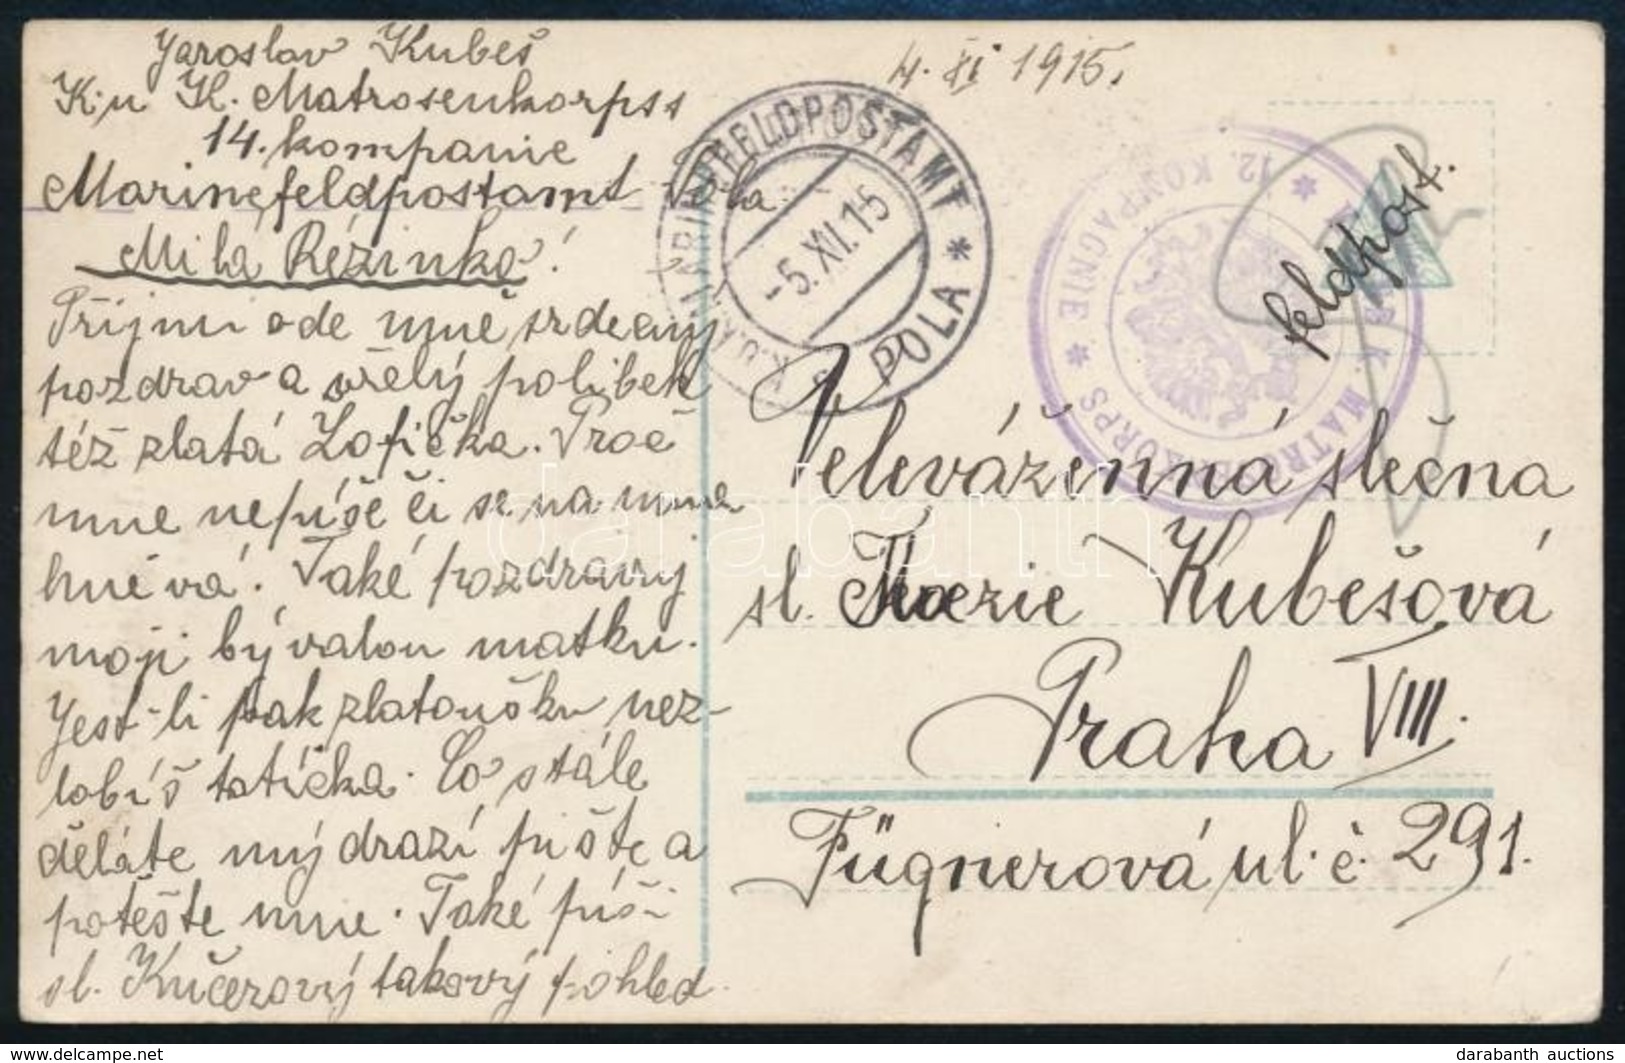 Jaroslav Kubeš
K. u K. Matrosenkorpss
14. kompanie
Marinefeldpostamt Pola.
Milá Rézinko!
Přijmi ode mne srdečný
pozdrav a vřelý polibek
též zlatá Žofička. Proč
mne nepíše či se na mne
hněvá. Také pozdravuj
moji bývalou matku.
Jest-li pak zlatoušku nez-
lobíš tatíčka. Co stále
děláte mý drazí pište a
potěšte mne. Také píši
sl. Kučerový takový pohled.
4. XI 1915.
K.U.K. MARINEFELDPOSTAMT * POLA *
-5.XI.15
K. MATROSENKORPS * 12. KOMPAGNIE *
feldpost.
Velevázenná slečna
sl. Kubešová
Praha VIII.
Fügnerová ul. č. 291.
darabanth
darabanth auctions